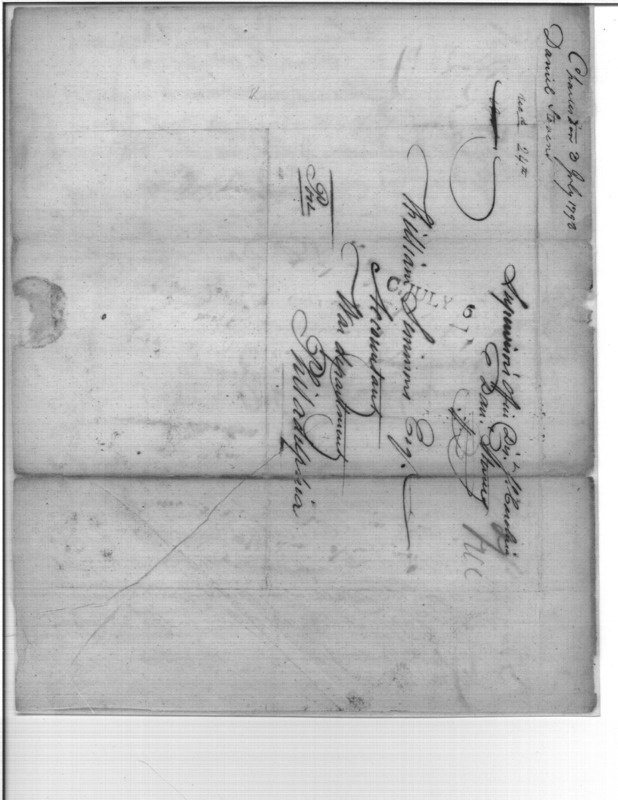 Charleston 3 July 1798
Daniel Stevens
recd 24th
Supervisors Office Dis. So. Carolina
Dan. Stevens
Free
C. JULY 3
William Simmons Esq.
Accountant
War department
Philadelphia